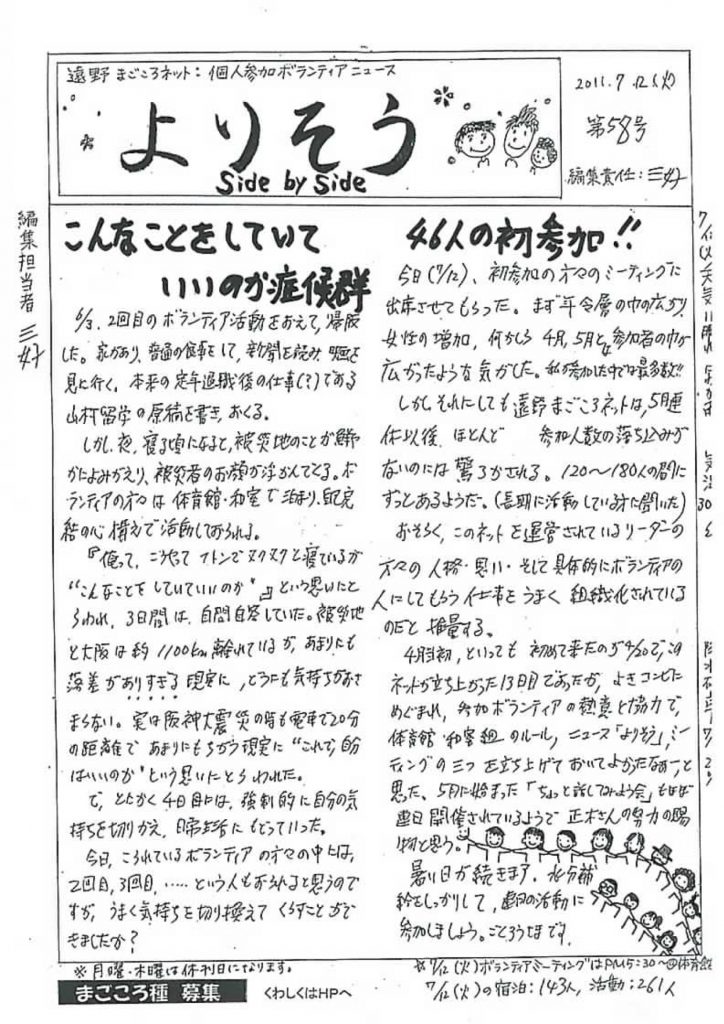 遠野まごころネット：個人参加ボランティアニュース
よりそう
Side by Side
2011.7.12(火)
第58号
編集責任：三好
編集担当者 三好
こんなことをしていて
いいのか症候群
6/3、2回目のボランティア活動をおえて、帰阪
した。家があり、普通の食事をして、新聞を読み、映画を
見に行く。本来の定年退職後の仕事(?)である
山村留学の原稿を書き、おくる。
しかし、夜、寝る頃になると、被災地のことが鮮や
かによみがえり、被災者のお顔が浮かんでくる。ボ
ランティアの方々は体育館・和室で泊まり、自己完
結の心構えで活動しておられる。
『俺って、こうやってフトンでヌクヌクと寝ているが
“こんなことをしていていいのか”』という思いにと
らわれ、3日間は、自問自答していた。被災地
と大阪は約1100km離れているが、あまりにも
落差がありすぎる現実に、どうにも気持ちがおさ
まらない。実は阪神大震災の時も電車で20分
の距離であまりにもちがう現実に“これで、自分
はいいのか”という思いにとらわれた。
で、とにかく4日目には、強制的に自分の気
持ちを切りかえ、日常生活にもどっていった。
今日、こられているボランティアの方々の中には、
2回目、3回目、……という人もおられると思うので
すが、うまく気持ちを切り換えてくらすことができ
きましたか？
46人の初参加!!
今日(7/12)、初参加の方々のミーティングに
出席させてもらった。まず年令層の巾の広がり、
女性の増加、何かしら4月、5月と参加者の巾が
広かったような気がした。私が参加した中では最多数!!
しかし、それにしても遠野まごころネットは、5月連
休以後、ほとんど 参加人数の落ち込みが
ないのには驚ろかされる。120〜180人の間に
ずっとあるようだ。(長期に活動している方に聞いた)
おそらく、このネットを運営されているリーダーの
方々の人格・思い・そして具体的にボランティアの
人にしてもらう仕事をうまく組織化されている
のだと推量する。
4月当初、といっても初めて来たのが4/20で、この
ネットが立ち上がった13日目であったが、よきコンビに
めぐまれ、参加ボランティアの熱意と協力で、
体育館・和室組のルール、ニュース「よりそう」、ミー
ティングの三つを立ち上げておいてよかったなぁー、と
思った。5月に始まった「ちょっと話してみよう会」もほぼ
連日開催されているようで正木さんの努力の賜
物と思う。
暑い日が続きます。水分補
給をしっかりして、連日の活動に
参加しましょう。ごくろうさまです。
7/12(火)天気：晴れ
気温30℃
※月曜・木曜は休刊日になります。
まごころ種 募集
くわしくはHPへ
※7/12(火)ボランティアミーティングはPM5:30〜@体育館
7/12(火)の宿泊：143人，活動：261人